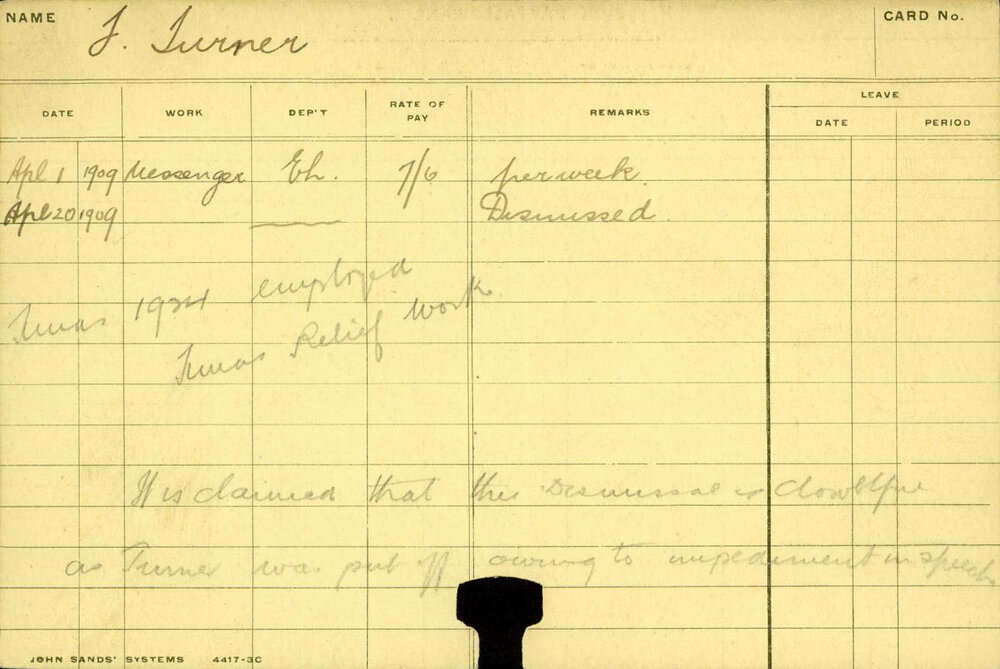 NAME J. Turner CARD No.
DATE WORK DEP'T RATE OF PAY REMARKS LEAVE
DATE PERIOD
Apl 1 1909 Messenger Eh. 7/6 per week
Apl 20 1909 Dismissed
Xmas 1924 employed
Xmas Relief Work
It is claimed that this Dismissal is doubtful
as Turner was put off owing to impediment in speech
JOHN SANDS' SYSTEMS 4417-3C